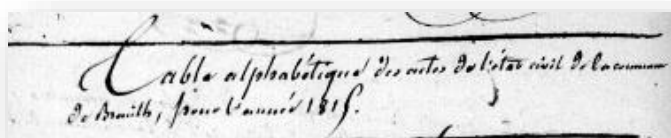 Table alphabétique des actes de l'état civil de la commune
de Brauilh, pour l'année 1815.